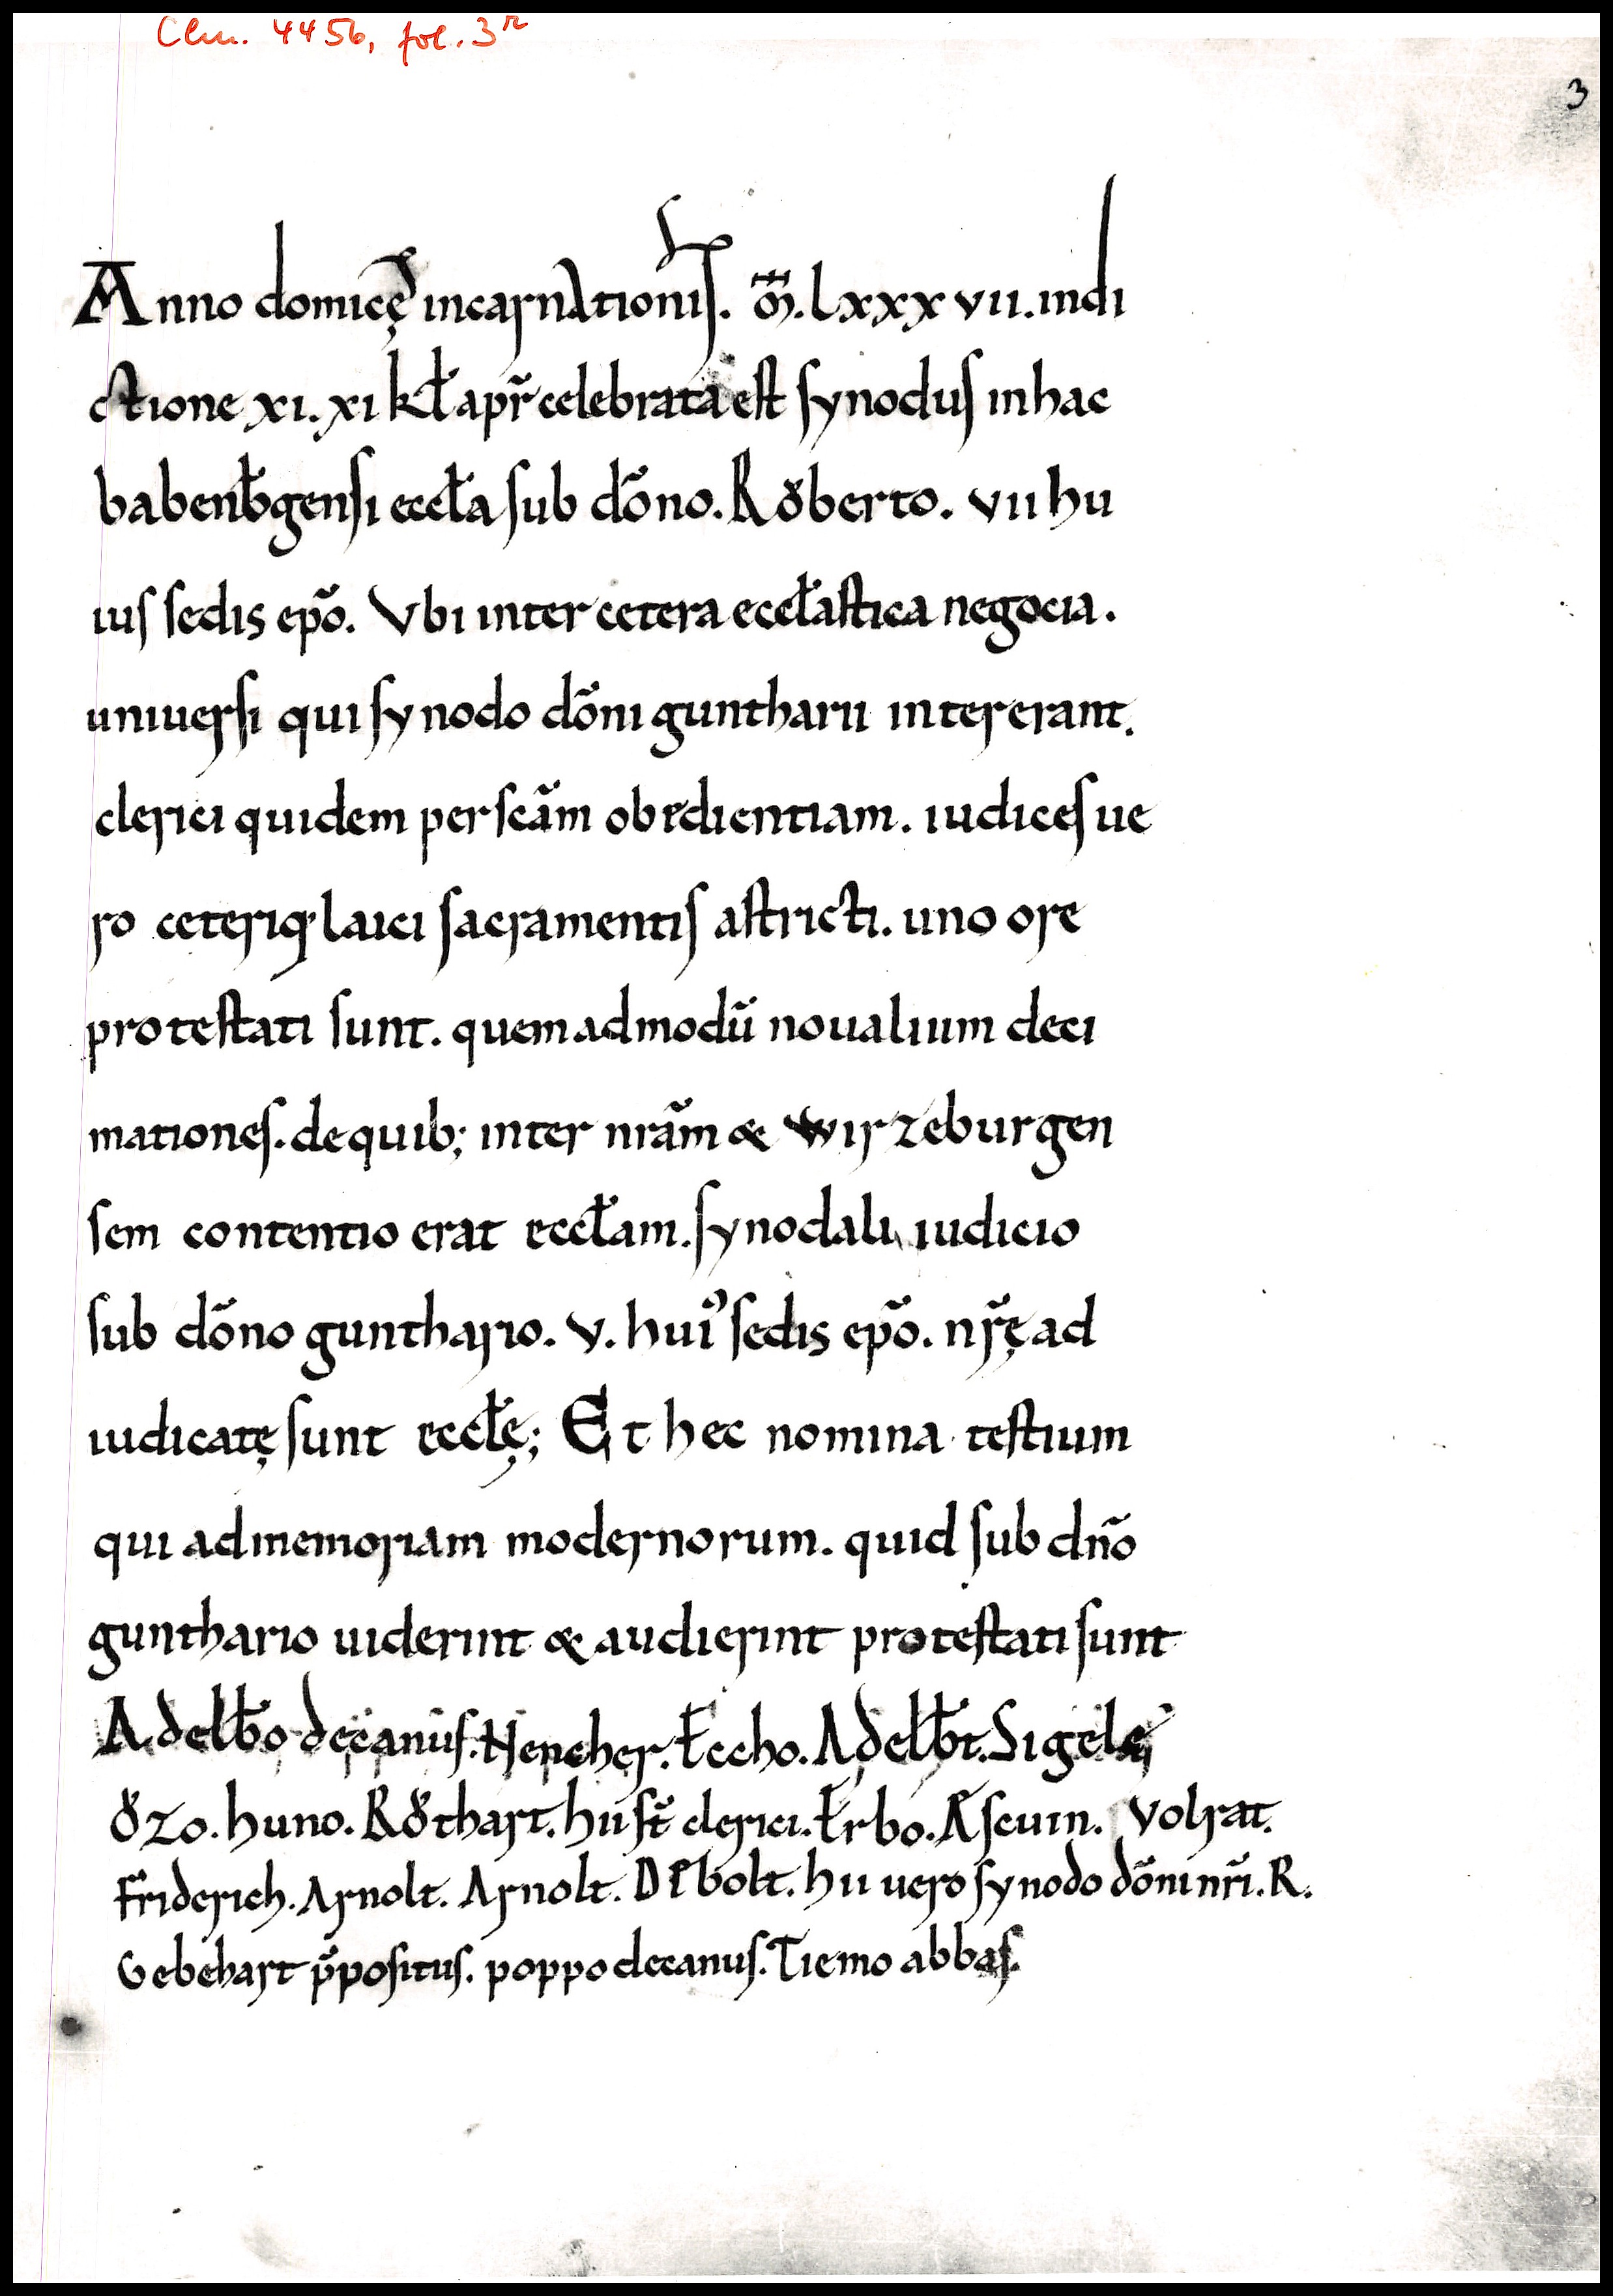 Clm. 4456, fol. 3r
3
Anno domicę incarnationis. m̅. lxxxvii. indi
ctione xi. xi kł apr̄ celebrata est synodus in hac
babenb̄gensi eccła sub dōno. Rǒberto. vii hu
ius sedis ep̄o. Vbi inter cetera eccłastica negocia.
uniuersi qui synodo dōni guntharii intererant.
clerici quidem per sc̄am obedientiam. iudices ue
ro ceteriq; laici sacramentis astricti. uno ore
protestati sunt. quemadmodū noualium deci
mationes. de quib; inter nr̄am & wirzeburgen
sem contentio erat eccłam. synodali iudicio
sub dōno gunthario. v. hui᾽ sedis ep̄o. nr̄ę ad
iudicatę sunt eccłę; Et hec nomina testium
qui ad memoriam modernorum. quid sub dn̄o
gunthario uiderint & audierint protestati sunt
Adelb̄o decanus. Hencher. Eccho. Adelb̄t. Sigel
Ǒzo. huno. Rǒthart. hii st̄ clerici. Erbo. Ascuin. Volrat.
Friderich. Arnolt. Arnolt. Diebolt. hii uero synodo dōni nr̄i. R.
Gebehart p̄positus. poppo decanus. Tiemo abbas.